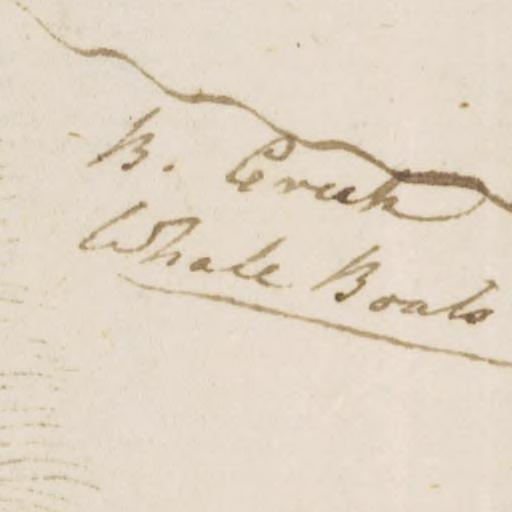 B. Creek
Whale Boats